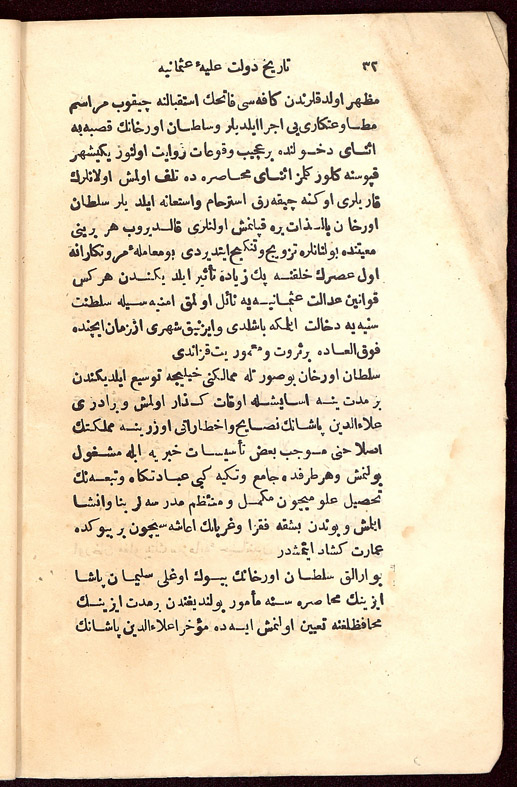 ٣٢ تاریخ دولت علیهٔ عثمانیه
مظهر اولدقلرندن کافه‌سی فاتحك استقبالنه چیقوب مراسم
مطاوعتکاری‌یی اجرا ایلدیلر وسلطان اورخانك قصبه‌یه
اثنای دخولنده بر عجیب وقوعات روایت اولنور یکیشهر
قپوسنه کلور کلمز اثنای محاصره ده تلف اولمش اولانلرك
قاریلری اوکنه چیقه‌رق استرحام واستعانه ایلدیلر سلطان
اورخان بالذات بره قپانمش اولنلری قالدیروب هر برینی
معیتنده بولنانلره تزویج وتنکیح ایتدیردی بو معاملهٔ مروتکارانه
اول عصرك خلقنه پك زیاده تأثیر ایلدیکندن هرکس
قوانین عدالت عثمانیه‌یه نائل اولمق امنیه‌سیله سلطنت
سنیه‌یه دخالت ایتمکه باشلدی وازنیق شهری از زمان ایچنده
فوق العاده بر ثروت ومعموریت قزاندی
سلطان اورخان بوصورتله ممالکنی خیلیجه توسیع ایلدیکندن
بر مدت ینه اسایشله اوقات کذار اولمش وبرادری
علاءالدین پاشانك نصایح واخطاراتی اوزرینه مملکتك
اصلاحنی موجب بعض تأسیسات خیریه ایله مشغول
بولنمش وهر طرفده جامع وتکیه کبی عبادتکاه وتبعه‌نك
تحصیل علومیچون مکمل ومنتظم مدرسه‌لر بنا وانشا
ایتمش وبوندن بشقه فقرا وغربانك اعاشه‌سیچون بر بیوکده
عمارت کشاد ایتمشدر
بو ارالق سلطان اورخانك بیوك اوغلی سلیمان پاشا
ازنیك محاصره‌سنه مأمور بولندیغندن بر مدت ازنیك
محافظلغنه تعیین اولنمش ایسه ده مؤخرا علاءالدین پاشانك